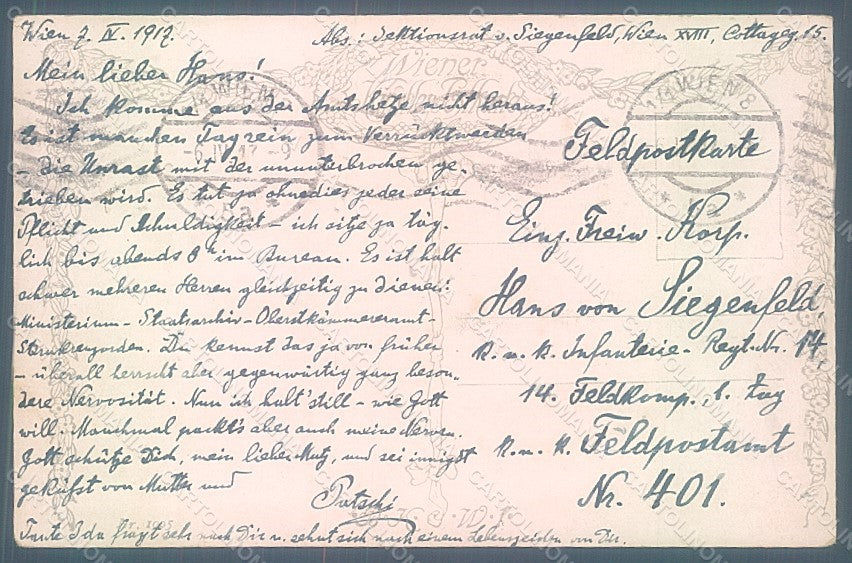 Wien 7. IV. 1917.
Abs.: Sektionsrat v. Siegenfeld, Wien XVIII, Cottageg. 15.
Mein lieber Hans!
Ich komme aus der Amtshetze nicht heraus!
Es ist manchen Tag rein zum Verrücktwerden
- die Unrast mit der ununterbrochen ge-
trieben wird. Es tut ja ohnedies jeder seine
Pflicht und Schuldigkeit - ich sitze ja täg-
lich bis abends 8h im Bureau. Es ist halt
schwer mehreren Herren gleichzeitig zu dienen:
Ministerium - Staatsarchiv - Oberstkämmereramt -
Sternkreuzorden. Du kennst das ja von früher
- überall herrscht aber gegenwärtig ganz beson-
dere Nervosität. Nun ich halt' still - wie Gott
will. Manchmal packt's aber auch meine Nerven.
Gott schütze Dich, mein lieber Mutz, und sei innigst
geküßt von Mutter und
Putschi
Tante Ida frägt sehr nach Dir u. sehnt sich nach einem Lebenszeichen von Dir.
Feldpostkarte
Einj. Freiw. Korp.
Hans von Siegenfeld,
K. u. K. Infanterie-Regt. Nr. 14,
14. Feldkomp., 1. Zug
K. u. K. Feldpostamt
Nr. 401.
Wiener
WIEN
WIEN 8
CARTOLINOMANIA